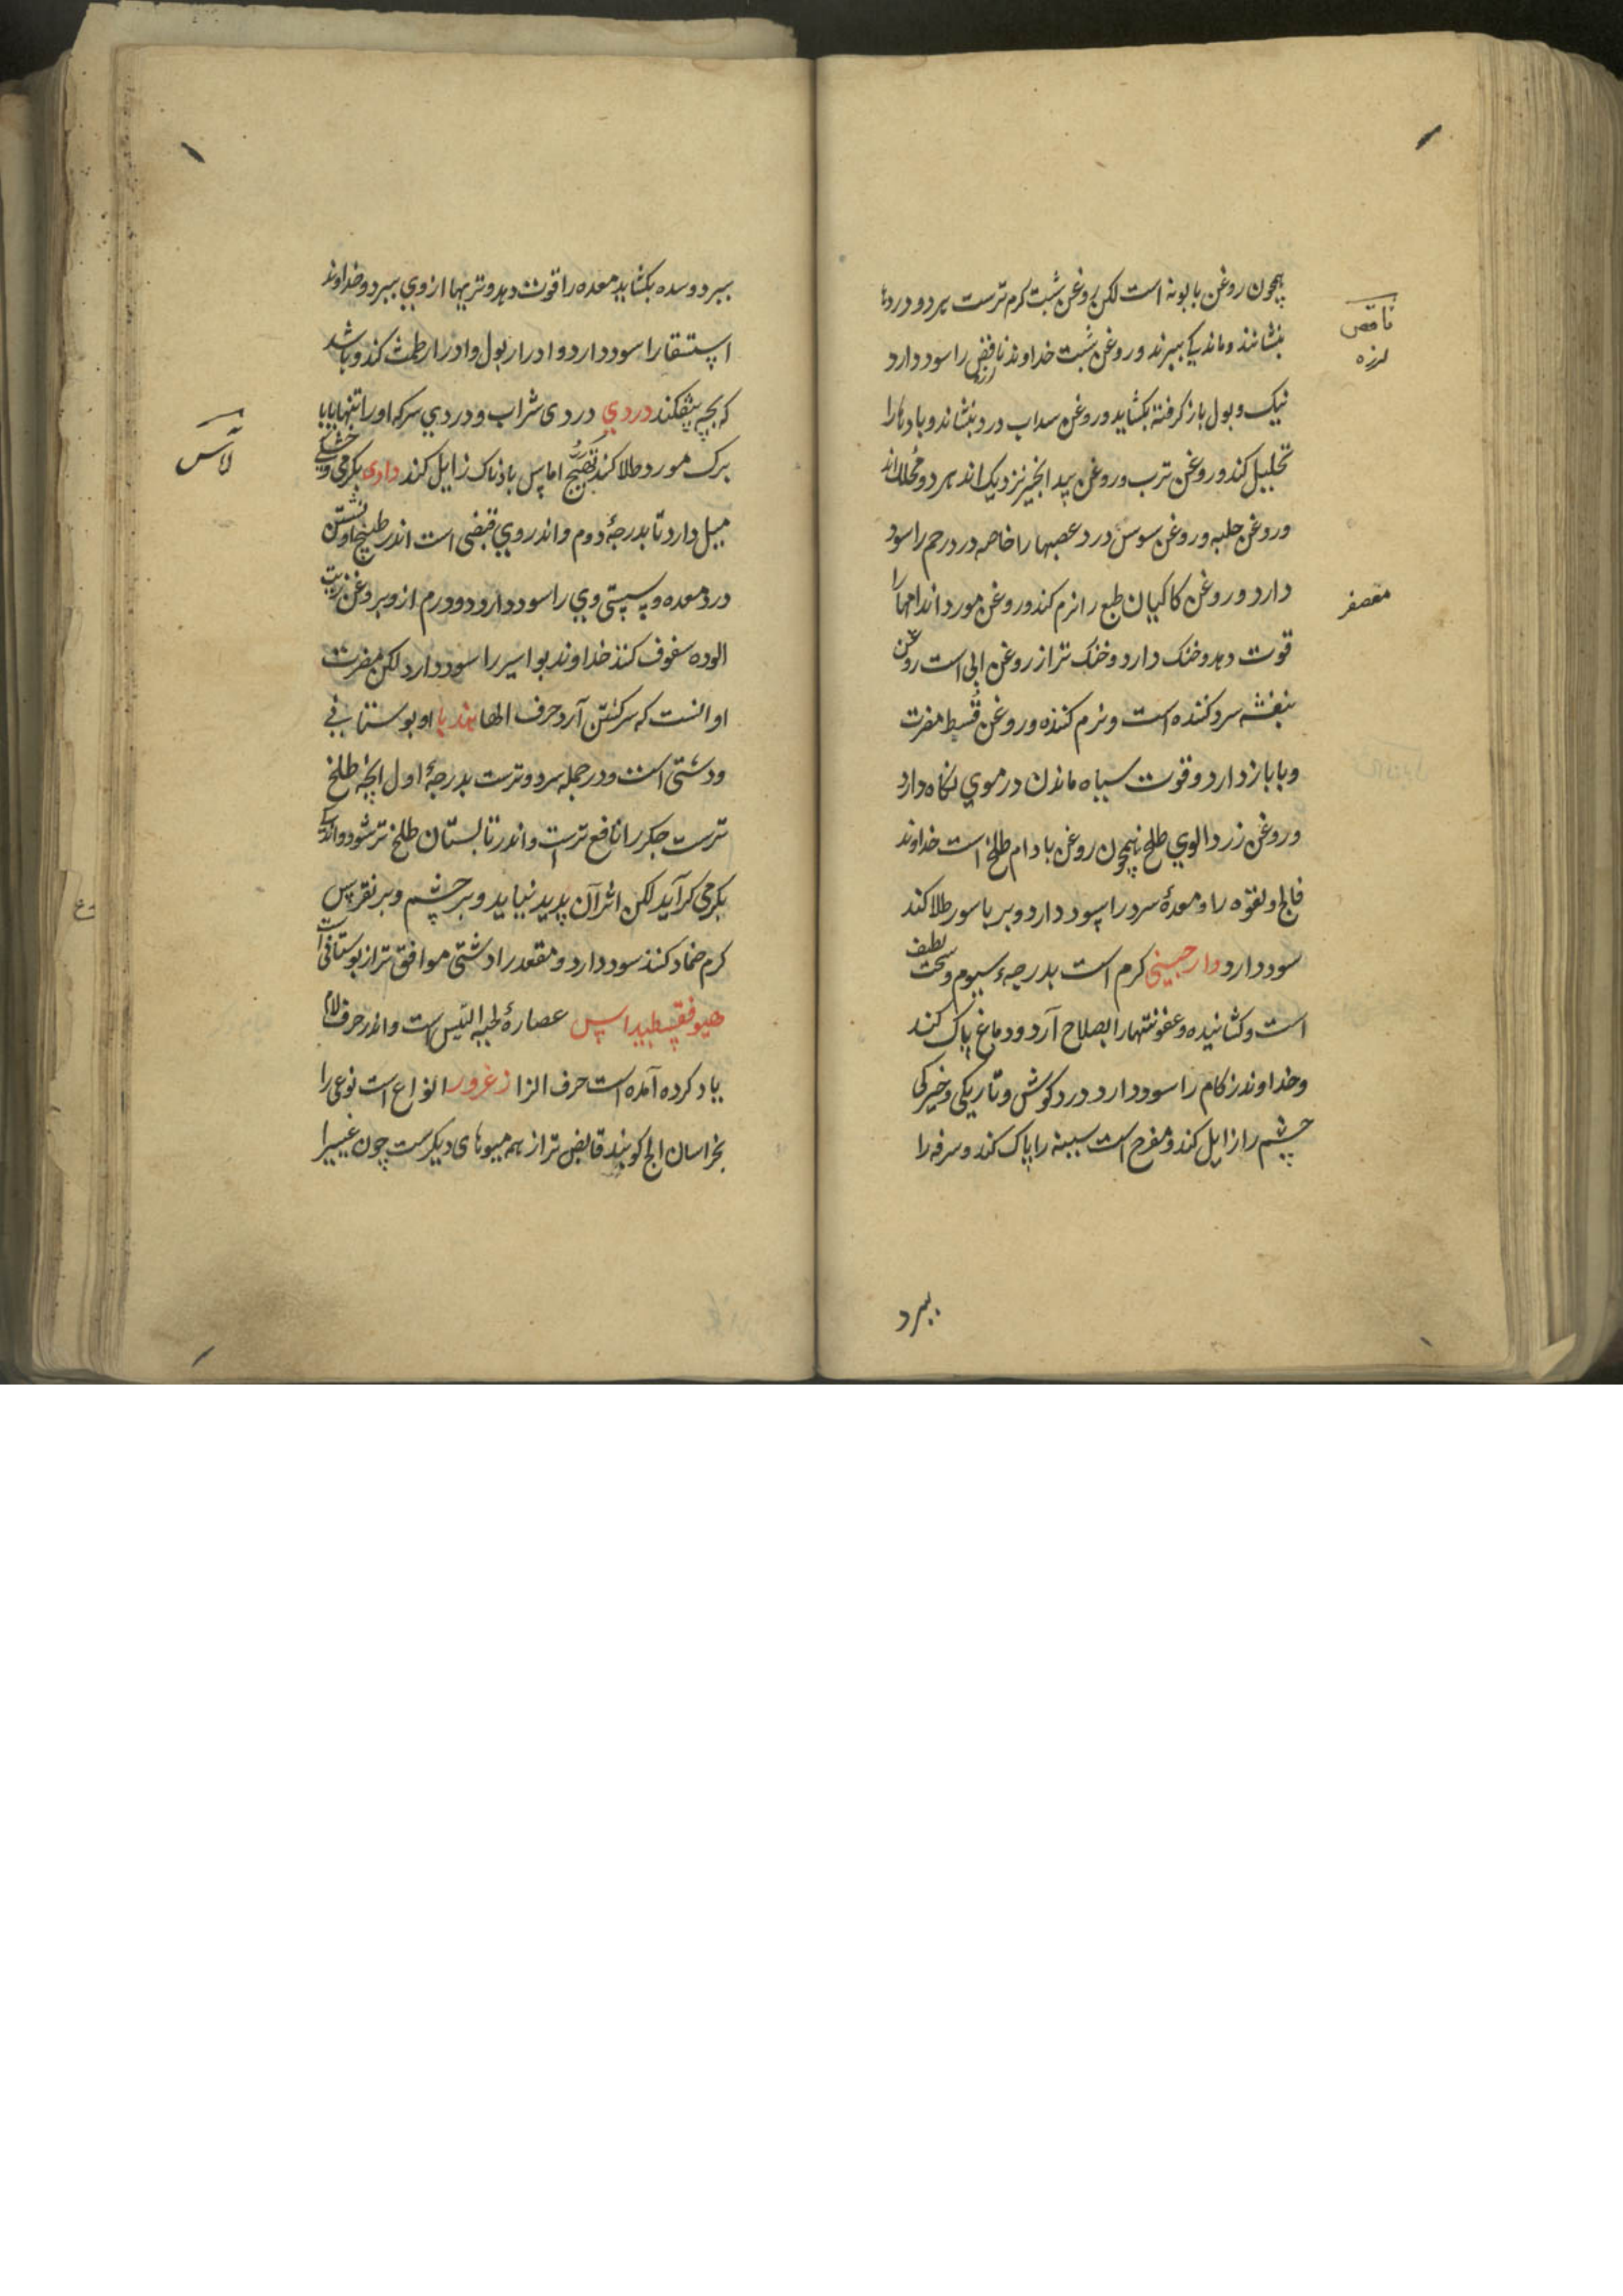 همچون روغن بابونه است لکن روغن شبت کرم ترست هر دو دردها
بنشانند و ماندیکی ببرند و روغن شبت خداوند نافض را سود دارد
لرزه
نیک و بول باز کرفته بکشاید و روغن سداب درد بنشاند و بادها را
تحلیل کند و روغن ترب و روغن بید انجیر نزدیک اند هر دو محلل اند
و روغن حلبه و روغن سوسن درد عصبها را خاصه درد رحم را سود
دارد و روغن کاکیان طبع را نرم کند و روغن مورد اندامها را
قوت دهد و خنک دارد و خنک تر از روغن ابی است روغن
بنفشه سرد کننده است و نرم کننده و روغن قسط مضرت
وبا باز دارد و قوت سیاه ماندن در موی نکاه دارد
و روغن زردالوی طلخ همچون روغن بادام طلخ است خداوند
فالج و لقوه را و معدهٔ سرد را سود دارد و بر باسور طلا کند
سود دارد دارجینی کرم است بدرجهٔ سیوم و سخت لطیف
است و کشانیده و عفونتها را بصلاح آرد و دماغ پاک کند
و خداوند زکام را سود دارد درد کوش و تاریکی و خیرکی
چشم را زایل کند و مفرح است سینه را پاک کند و سرفه را
ببرد
لرزه
معصفر
ببرد و سده بکشاید معده را قوت دهد و تریها از وی ببرد و خداوند
استسقا را سود دارد و ادرار بول و ادرار طمث کند و باشد
که بچه بیفکند دردی دردی شراب و دردی سرکه او را تنها یا با
برک مورد طلا کنند تهیج اماس بادناک زایل کند دادی بکرمی و خشکی
میل دارد تا بدرجهٔ دوم و اندر وی قبضی است اندر طبیخ او نشستن
درد معده و سستی وی را سود دارد و ورم ازو بروغن زیت
الوده سفوف کنند خداوند بواسیر را سود دارد لکن مضرت
او انست که سرکشتن آرد حرف الها هندبا او بوستانی
و دشتی است و در جمله سرد و ترست بدرجهٔ اول انچه طلخ
ترست جکر را نافع ترست و اندر تابستان طلخ تر شود و اندکی
بکرمی کرآید لکن اثر آن پدید نیاید و بر چشم و بر نقرس
کرم ضماد کنند سود دارد و مقعد را دشتی موافق تر از بوستانی است
هیوفقسطیداس عصارهٔ لحیه التیس است و اندر حرف لام
یاد کرده آمده است حرف الزا زغرور انواع است نوعی را
بخراسان الج کویند قابض تر از همه میوهای دیکرست چون غبیرا